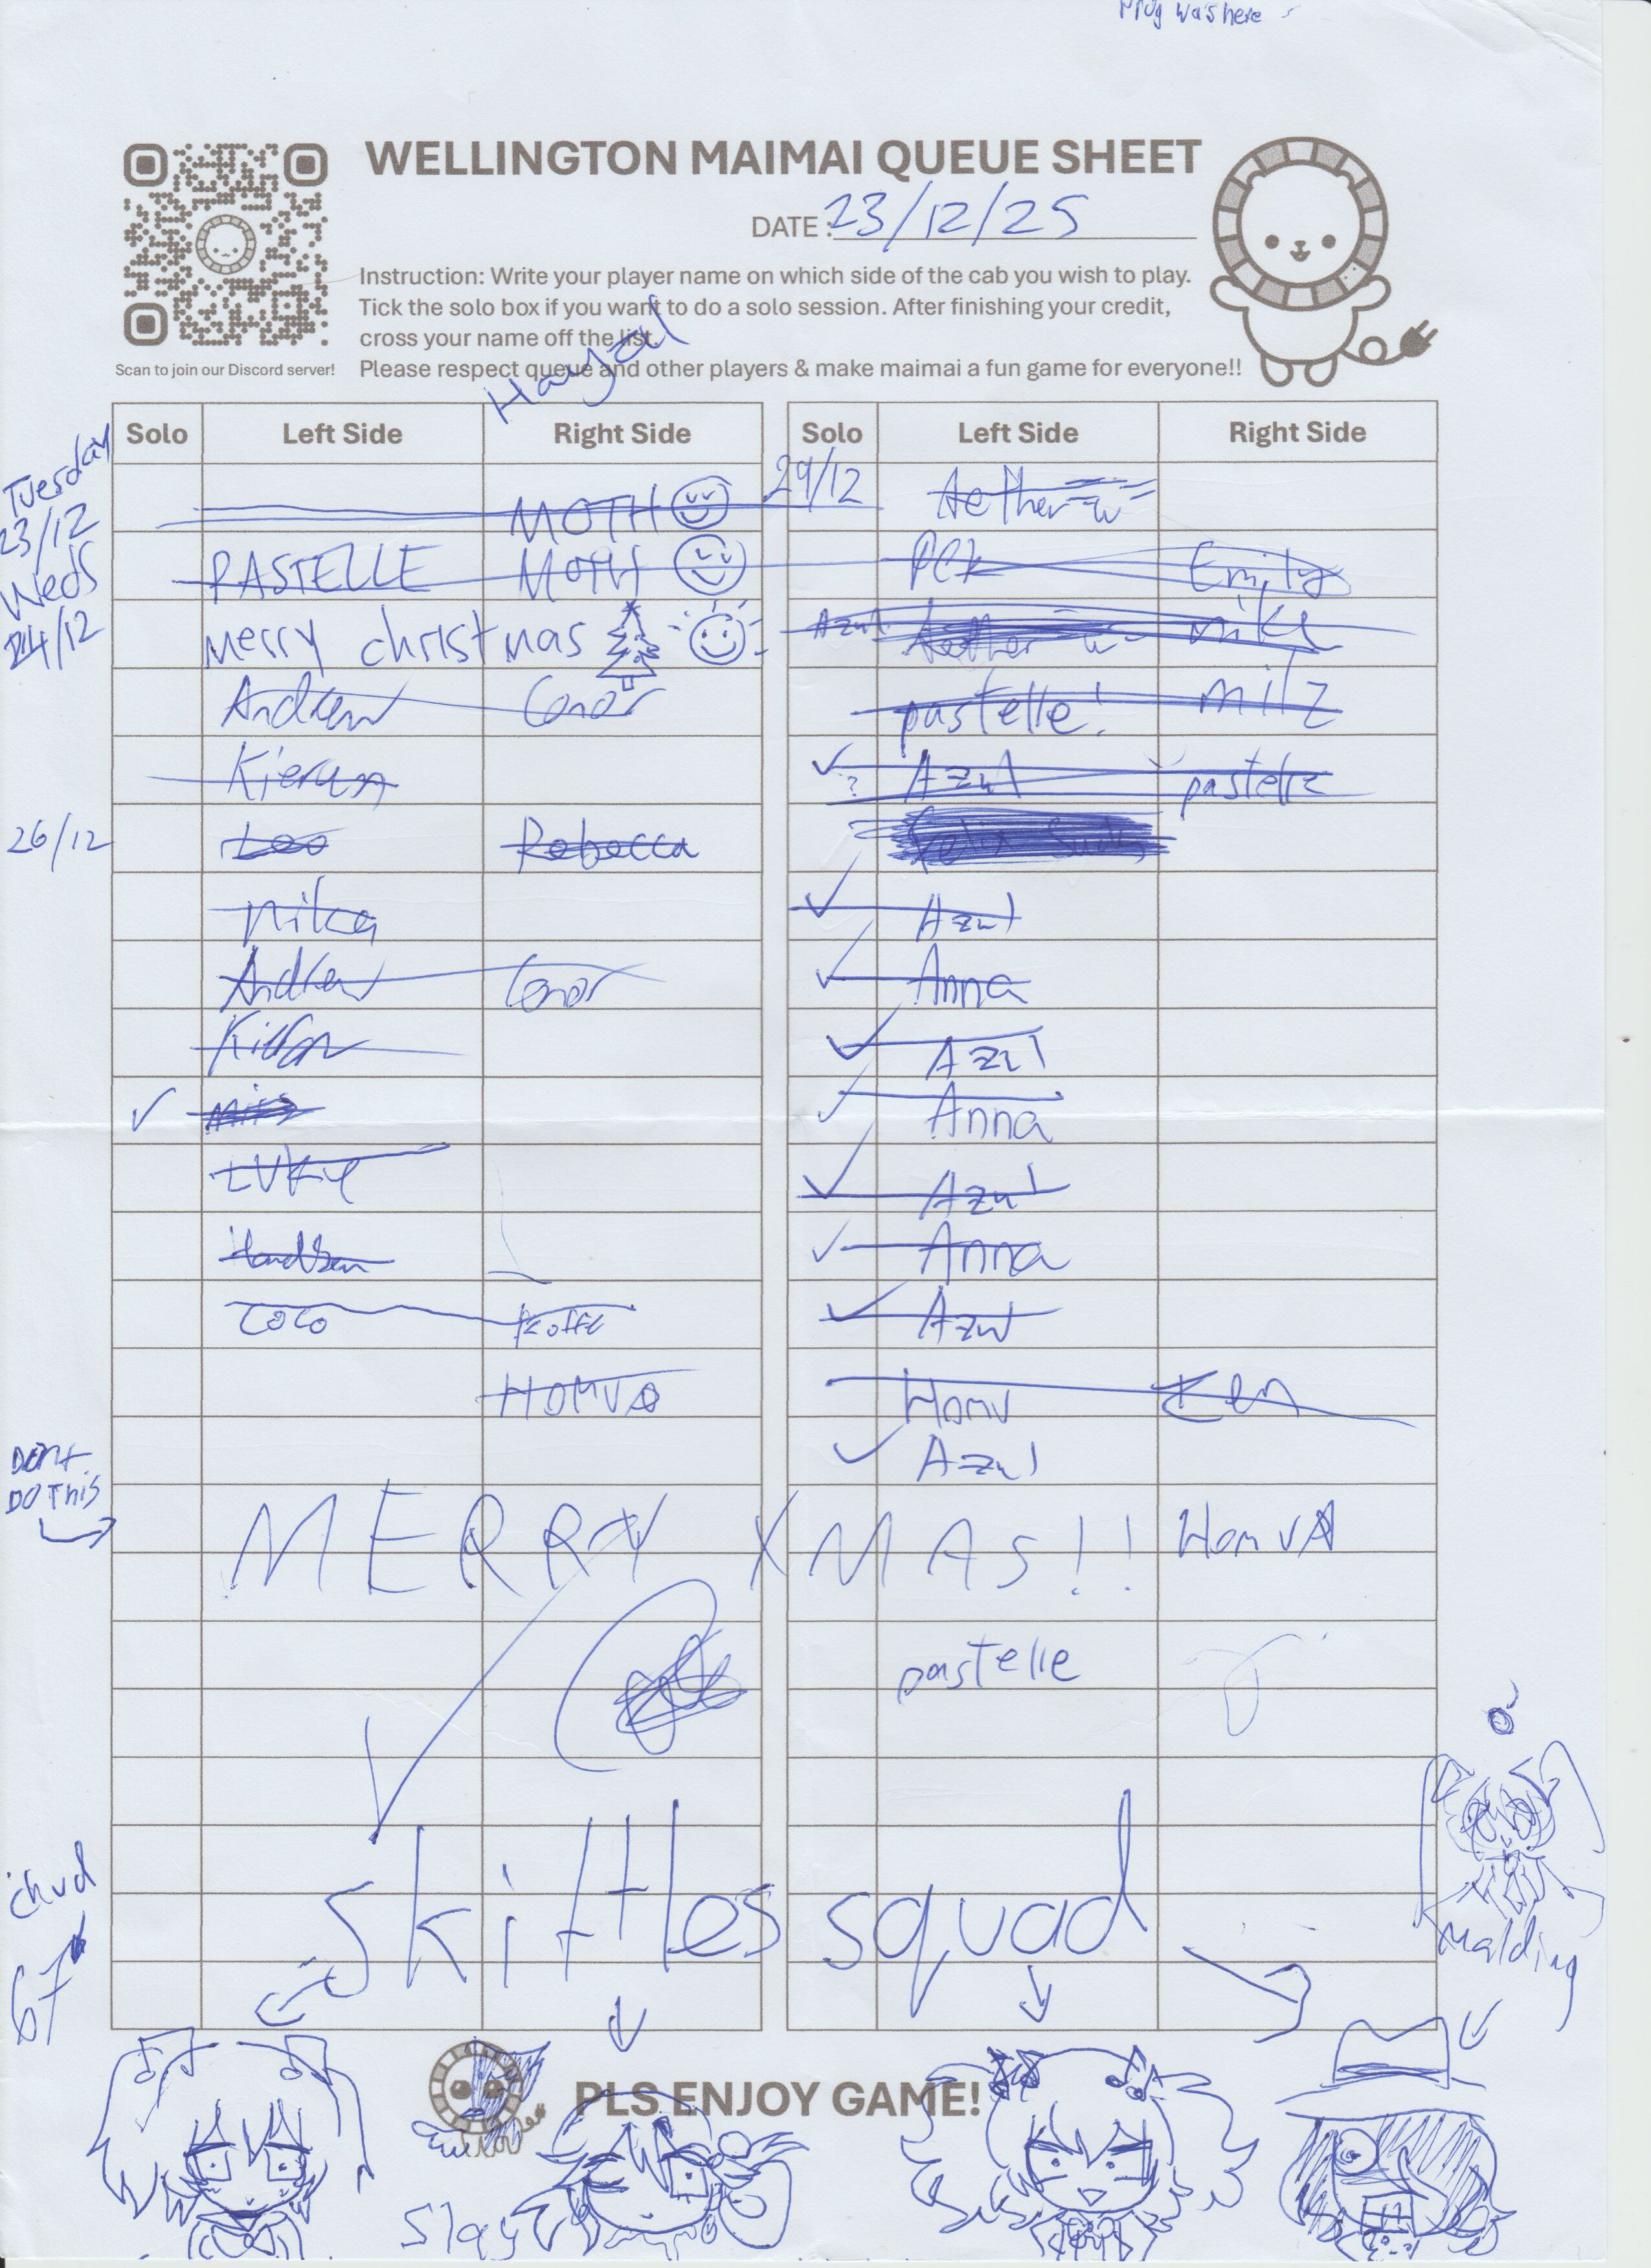 was here
WELLINGTON MAIMAI QUEUE SHEET
DATE: 23/12/25
Instruction: Write your player name on which side of the cab you wish to play.
Tick the solo box if you want to do a solo session. After finishing your credit,
cross your name off the list.
Please respect queue and other players & make maimai a fun game for everyone!!
Scan to join our Discord server!
Solo Left Side Right Side
Tuesday
23/12
Weds
24/12
MOTH
PASTELLE MOTH
merry christmas
Andrew Conor
Kieran
26/12 Leo Rebecca
Mika
Andrew Conor
Coco
HOMVA
DONT
DO THis
MERRY XMAS!!
Solo Left Side Right Side
29/12 Aether
PCK Emily
Azul Aether mika
pastelle! milz
? Azul pastelle
Azul
Anna
Azul
Anna
Azul
Anna
Azul
Homu Ken
Azul
HomVA
pastelle
skittles squad
chud
67
malding
PLS ENJOY GAME!
Slay